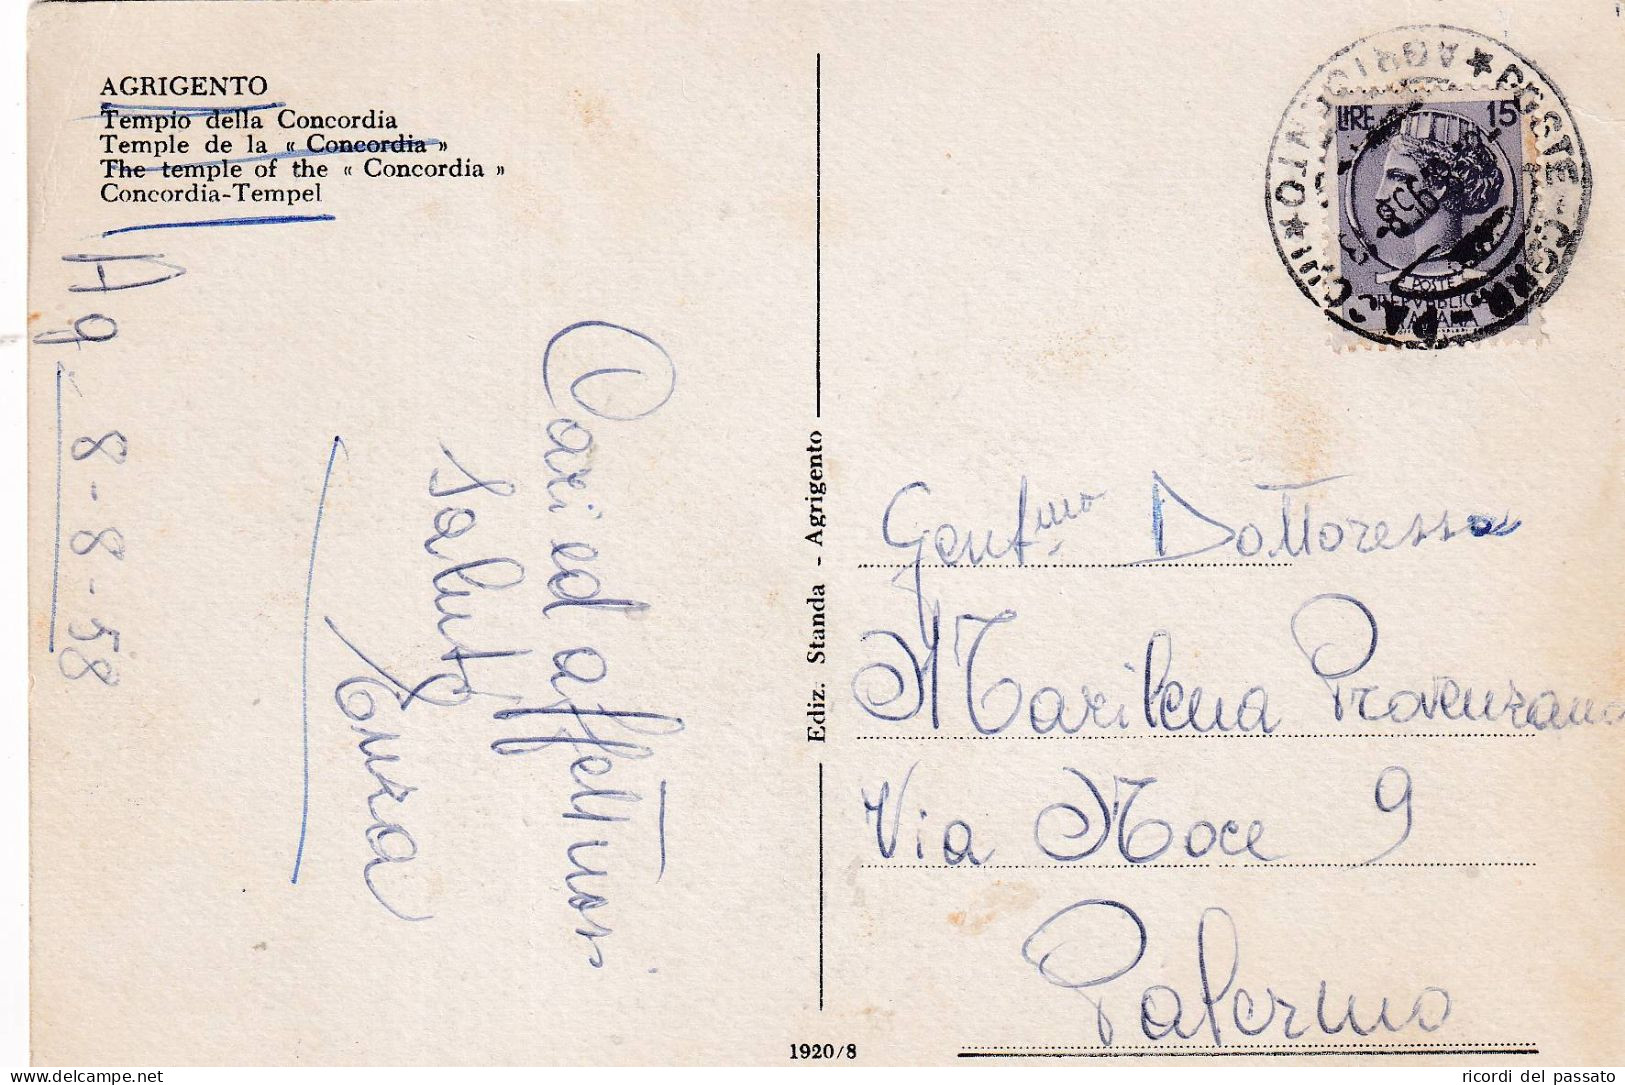 AGRIGENTO
Tempio della Concordia
Temple de la « Concordia »
The temple of the « Concordia »
Concordia-Tempel
Ag 8-8-58
Cari ed affettuosi
saluti
Enza
Ediz. Standa - Agrigento
1920/8
LIRE 15
POSTE
REPVBBLICA
ITALIANA
AGRIGENTO
1958
Gent.mo Dottoressa
Marilena Provenzano
Via Noce 9
Palermo
ricordi del passato